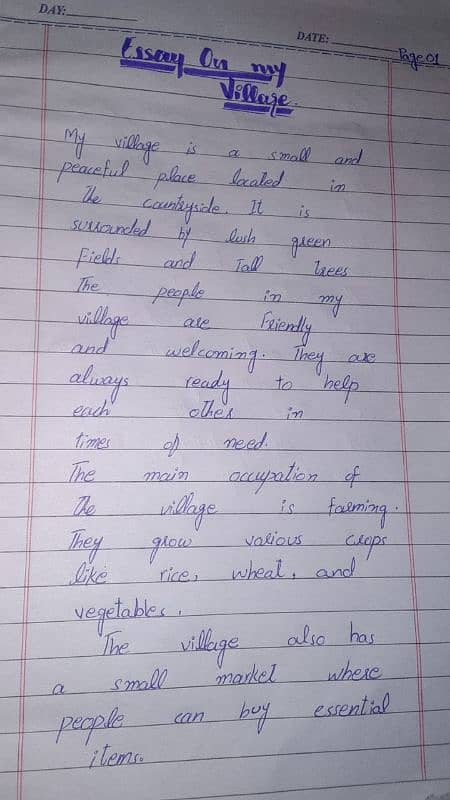 DAY:
DATE:
Page 01
Essay On my
Village.
My village is a small and
peaceful place located in
The countryside. It is
surrounded by lush green
Fields and Tall trees
The people in my
village are Friendly
and welcoming. They are
always ready to help
each other in
times of need.
The main occupation of
The village is farming.
They grow various crops
like rice, wheat, and
vegetables.
The village also has
a small market where
people can buy essential
items.